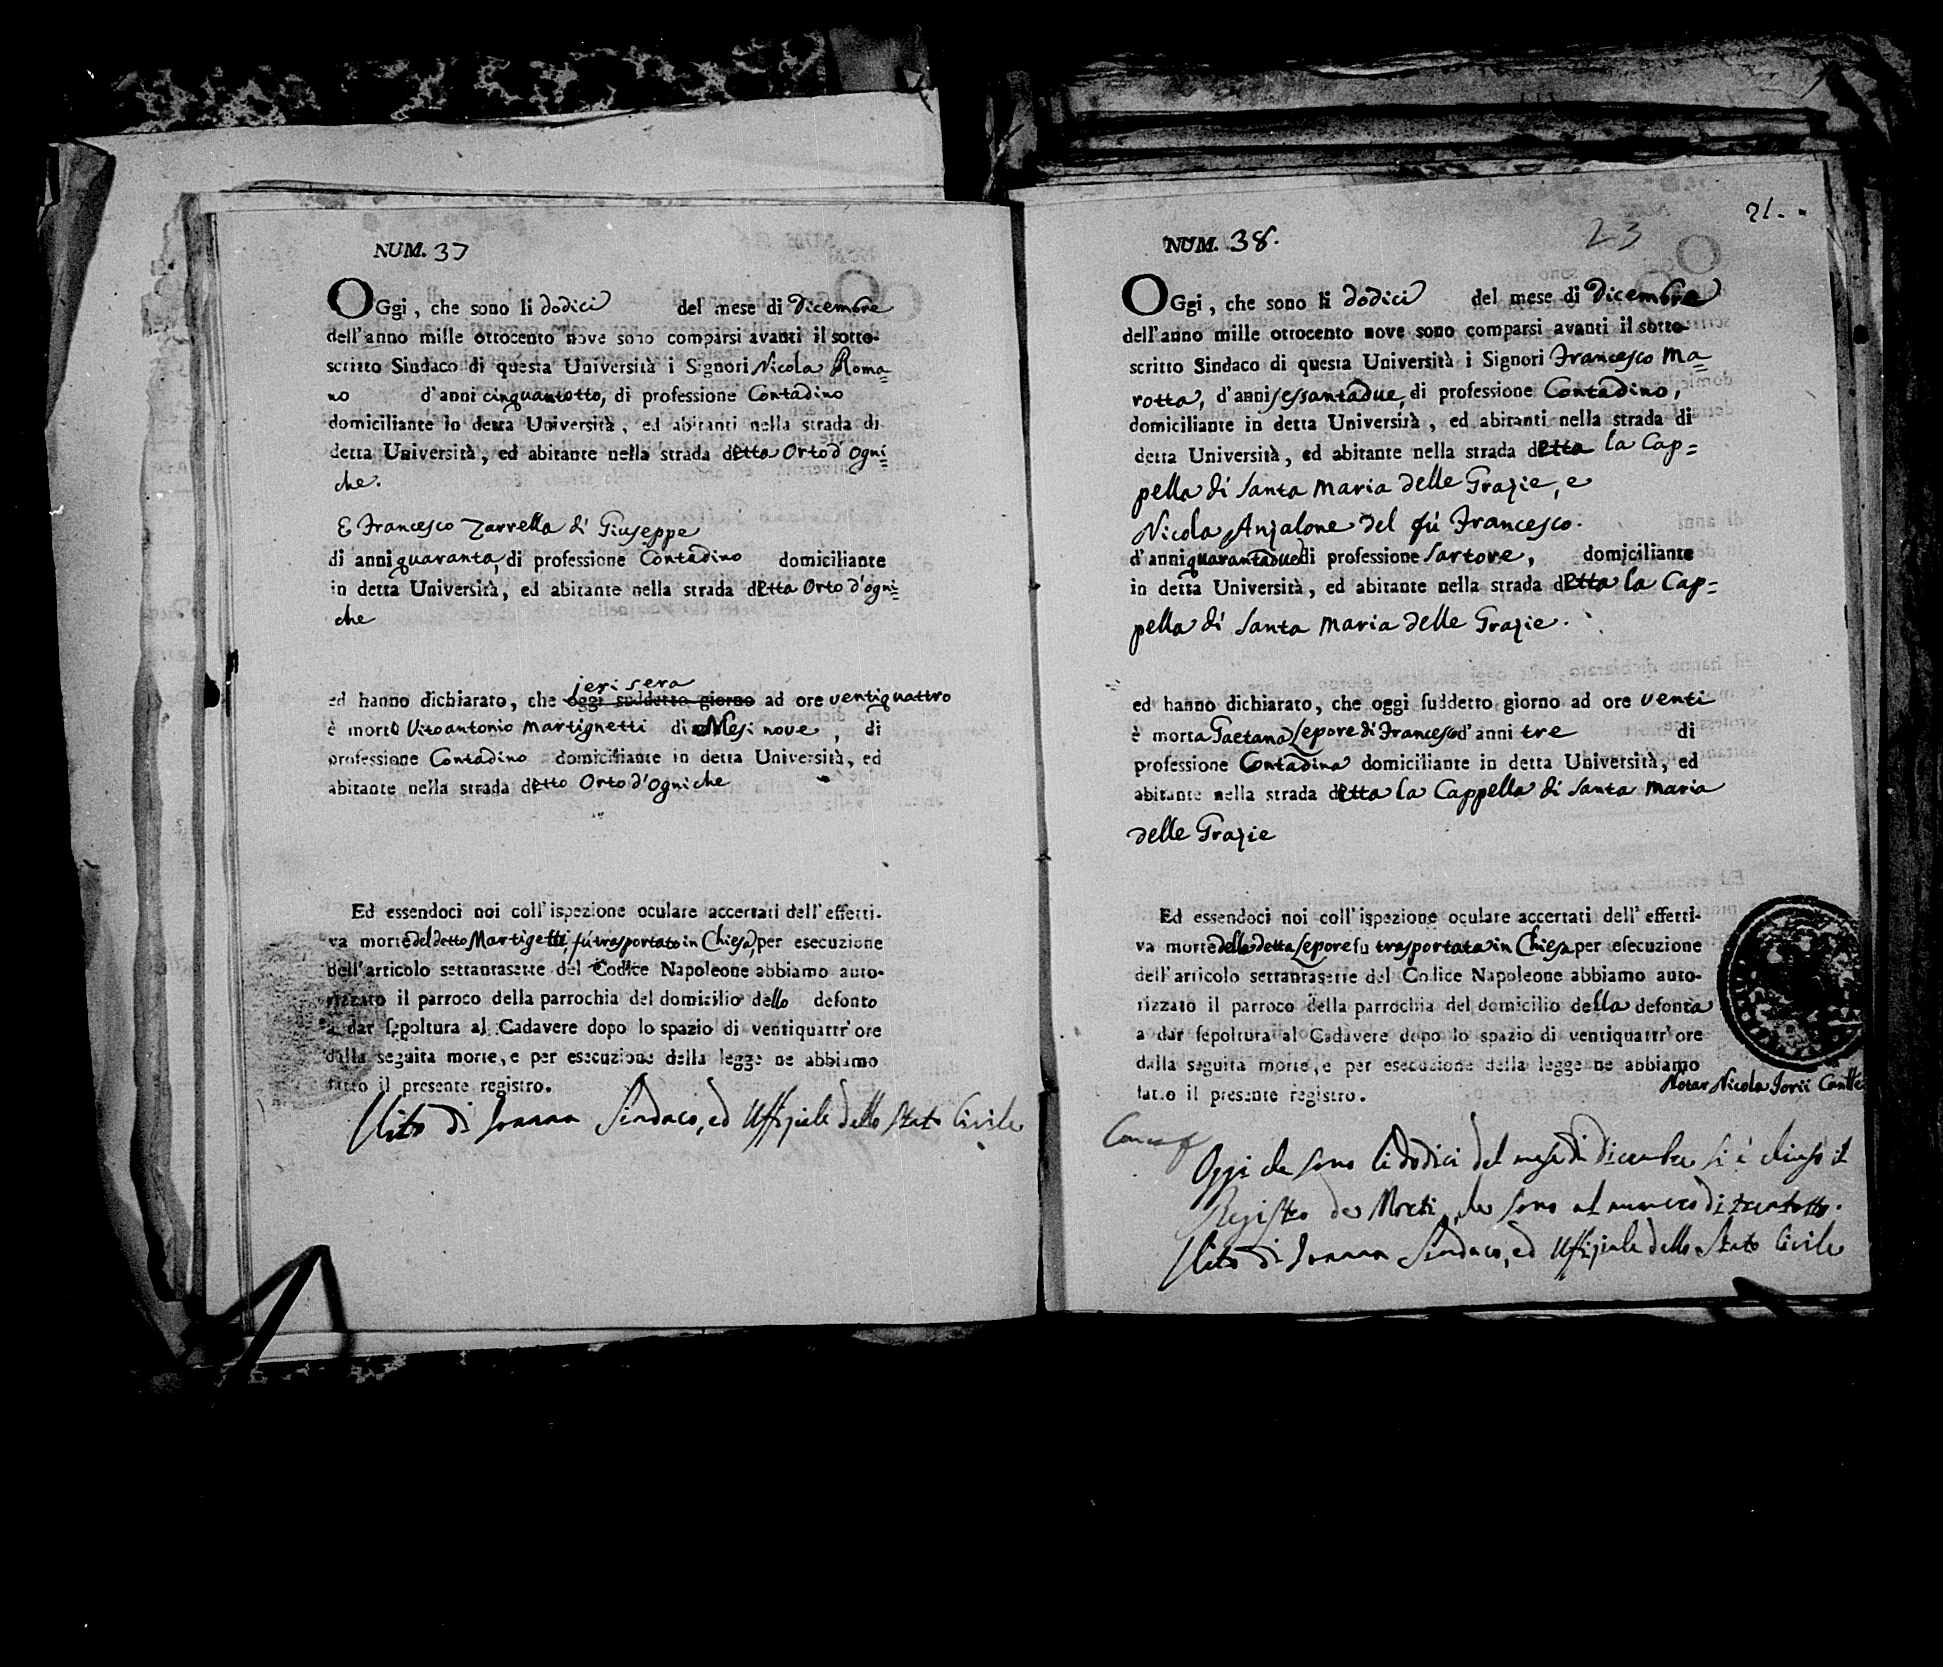 NUM. 37
OGgi, che sono li dodici del mese di Dicembre
dell'anno mille ottocento nove sono comparsi avanti il sotto-
scritto Sindaco di questa Università i Signori Nicola Roma=
no d'anni cinquantotto, di professione Contadino
domiciliante in detta Università, ed abitanti nella strada di
detta Università, ed abitante nella strada detta Orto d'ogni=
che.
E Francesco Zarrella di Giuseppe
di anni quaranta, di professione Contadino domiciliante
in detta Università, ed abitante nella strada detta Orto d'ogni=
che
jeri sera
ed hanno dichiarato, che oggi suddetto giorno ad ore ventiquattro
è morto Vitoantonio Martignetti di Mesi nove, di
professione Contadino domiciliante in detta Università, ed
abitante nella strada detto Orto d'Ogniche
Ed essendoci noi coll'ispezione oculare accertati dell'effetti-
va morte del detto Martigetti, fù trasportato in Chiesa, per esecuzione
dell'articolo settantasette del Codice Napoleone abbiamo auto-
rizzato il parroco della parrochia del domicilio dello defonto
a dar sepoltura al Cadavere dopo lo spazio di ventiquattr'ore
dalla seguita morte, e per esecuzione della legge ne abbiamo
fatto il presente registro.
Vito di Ioanna Sindaco, ed Uffiziale dello Stato Civile
21.
23
NUM. 38.
OGgi, che sono li dodici del mese di Dicembre
dell'anno mille ottocento nove sono comparsi avanti il sotto-
scritto Sindaco di questa Università i Signori Francesco Ma=
rotta, d'anni sessantadue, di professione Contadino,
domiciliante in detta Università, ed abitanti nella strada di
detta Università, ed abitante nella strada detta la Cap=
pella di Santa Maria delle Grazie, e
Nicola Anzalone del fù Francesco.
d'anni quarantadue di professione Sartore, domiciliante
in detta Università, ed abitante nella strada detta la Cap=
pella di Santa Maria delle Grazie.
ed hanno dichiarato, che oggi suddetto giorno ad ore venti
è morta Gaetana Lepore di Francesco d'anni tre di
professione Contadina domiciliante in detta Università, ed
abitante nella strada detta la Cappella di Santa Maria
delle Grazie
Ed essendoci noi coll'ispezione oculare accertati dell'effetti-
va morte della detta Lepore fu trasportata in Chiesa per esecuzione
dell'articolo settantasette del Codice Napoleone abbiamo auto-
rizzato il parroco della parrochia del domicilio della defonta
a dar sepoltura al Cadavere dopo lo spazio di ventiquattr'ore
dalla seguita morte, e per esecuzione della legge ne abbiamo
fatto il presente registro.
Notar Nicola Iorii
Oggi che sono li dodici del mese di Dicembre si è chiuso il
Registro de Morti, che sono al numero di trentotto.
Vito di Ioanna Sindaco, ed Uffiziale dello Stato Civile